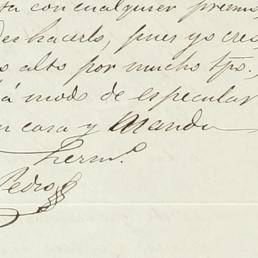 ta con cualquier premio,
deshacerlo, pues yo creo
s alto por mucho tpo.
á modo de especular
n casa y Manda
herm.º
Pedro